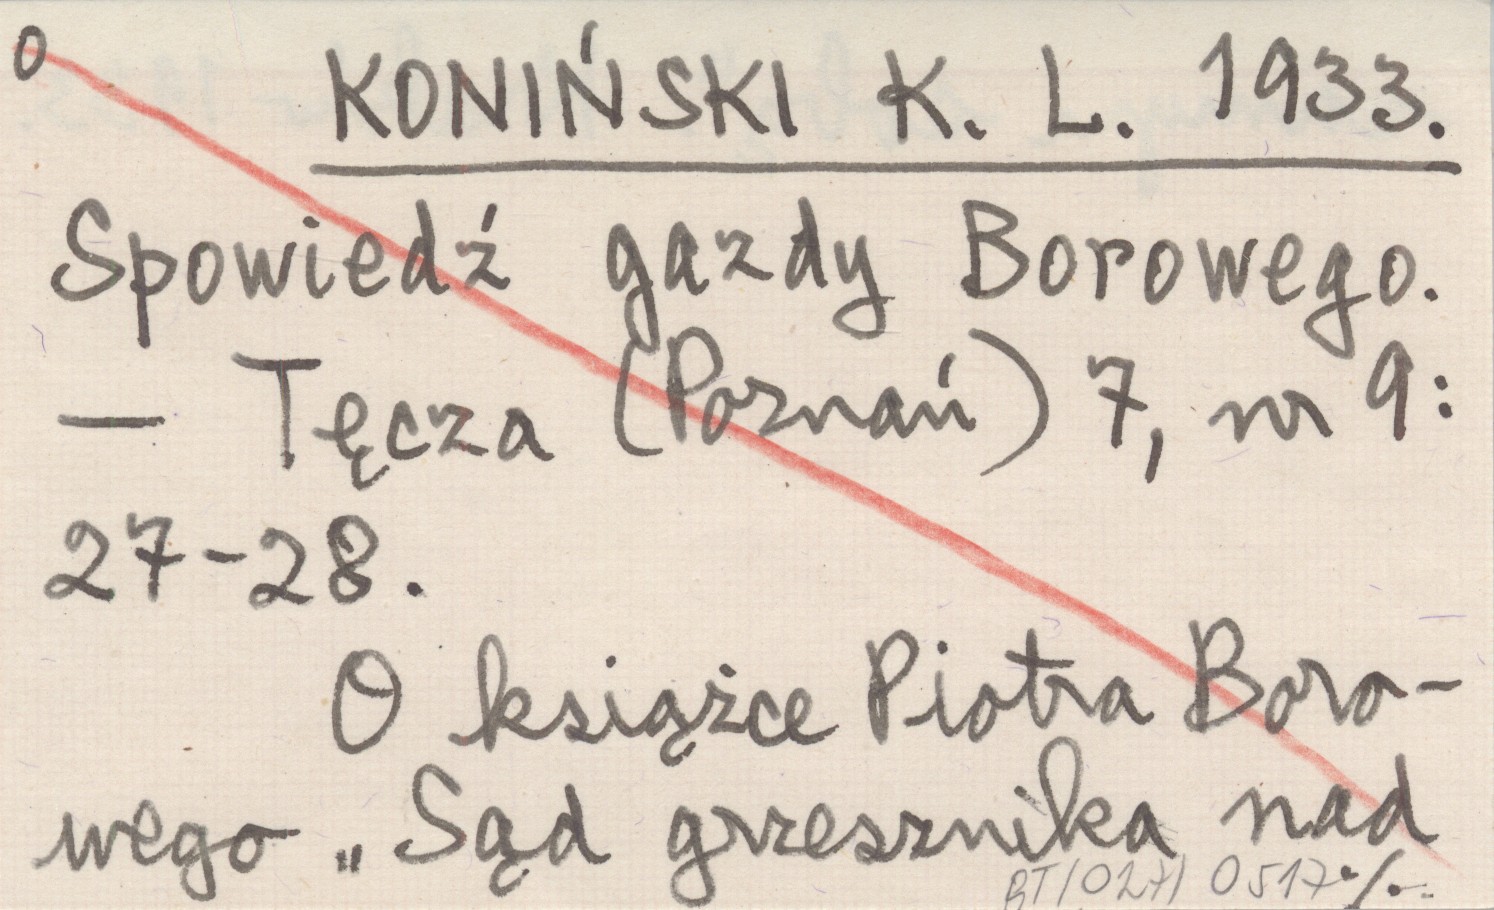 0 KONIŃSKI K. L. 1933.
Spowiedź gazdy Borowego.
— Tęcza (Poznań) 7, nr 9:
27-28.
O książce Piotra Boro-
wego „Sąd grzesznika nad
BT/027/ 0517 ./..